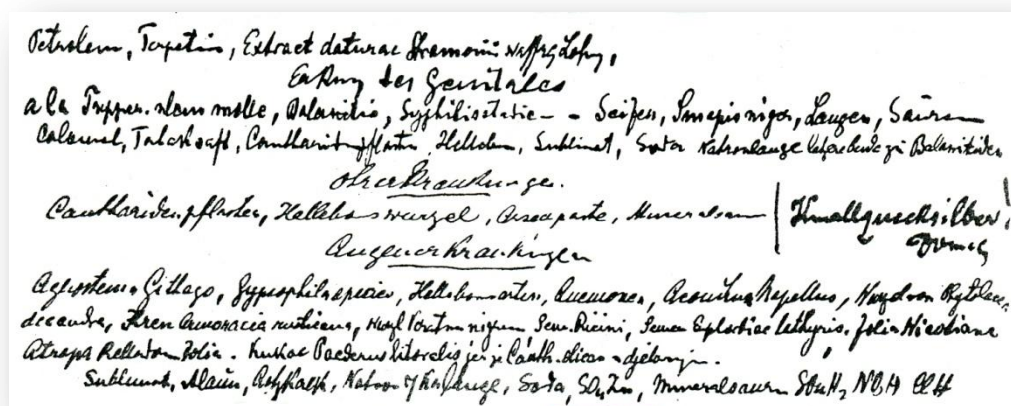 Petroleum, Terpetin, Extract daturae Stramonii
Erkrkg der Genitales
a la Tripper. ulcus molle, Balanitis, Syphilisstadie - - Seifen, Sinapis niger, Laugen, Säuren
Calomel, Tabaksaft, Cantharidenpflaster, Hellebor, Sublimat, Soda Natronlauge zu Balanitiden
Ohrerkrankungen.
Cantharidenpflaster, Helleboruswurzel, Arsenpaste, Mineralsäuren | Knallquecksilber!
Augenerkrankungen
Agrostema Githago, Gypsophila species, Helleborusarten, Anemonen, Aconitum Napellus, von Phytolacca
decandra, Kren Armoracia rusticana, nigrum Sem. Ricini, Semen Euphorbiae lathyris, Folia Nicotiana
Atropa Belladon Folia. Paederus litoralis jer je Canth.
Sublimat, Alaun, Aetzkalk, Natron Kalilauge, Soda, SO₄Zn, Mineralsäuren SO₄H₂ NO₃H ClH